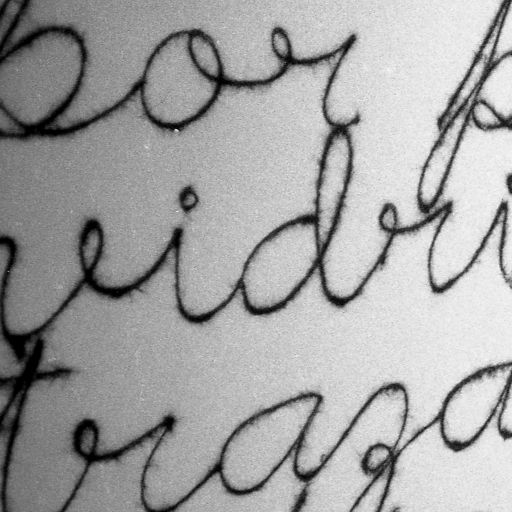 bor p
vidri
traza